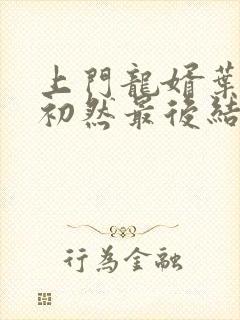 上門龍婿葉
初然最後結
行為金融